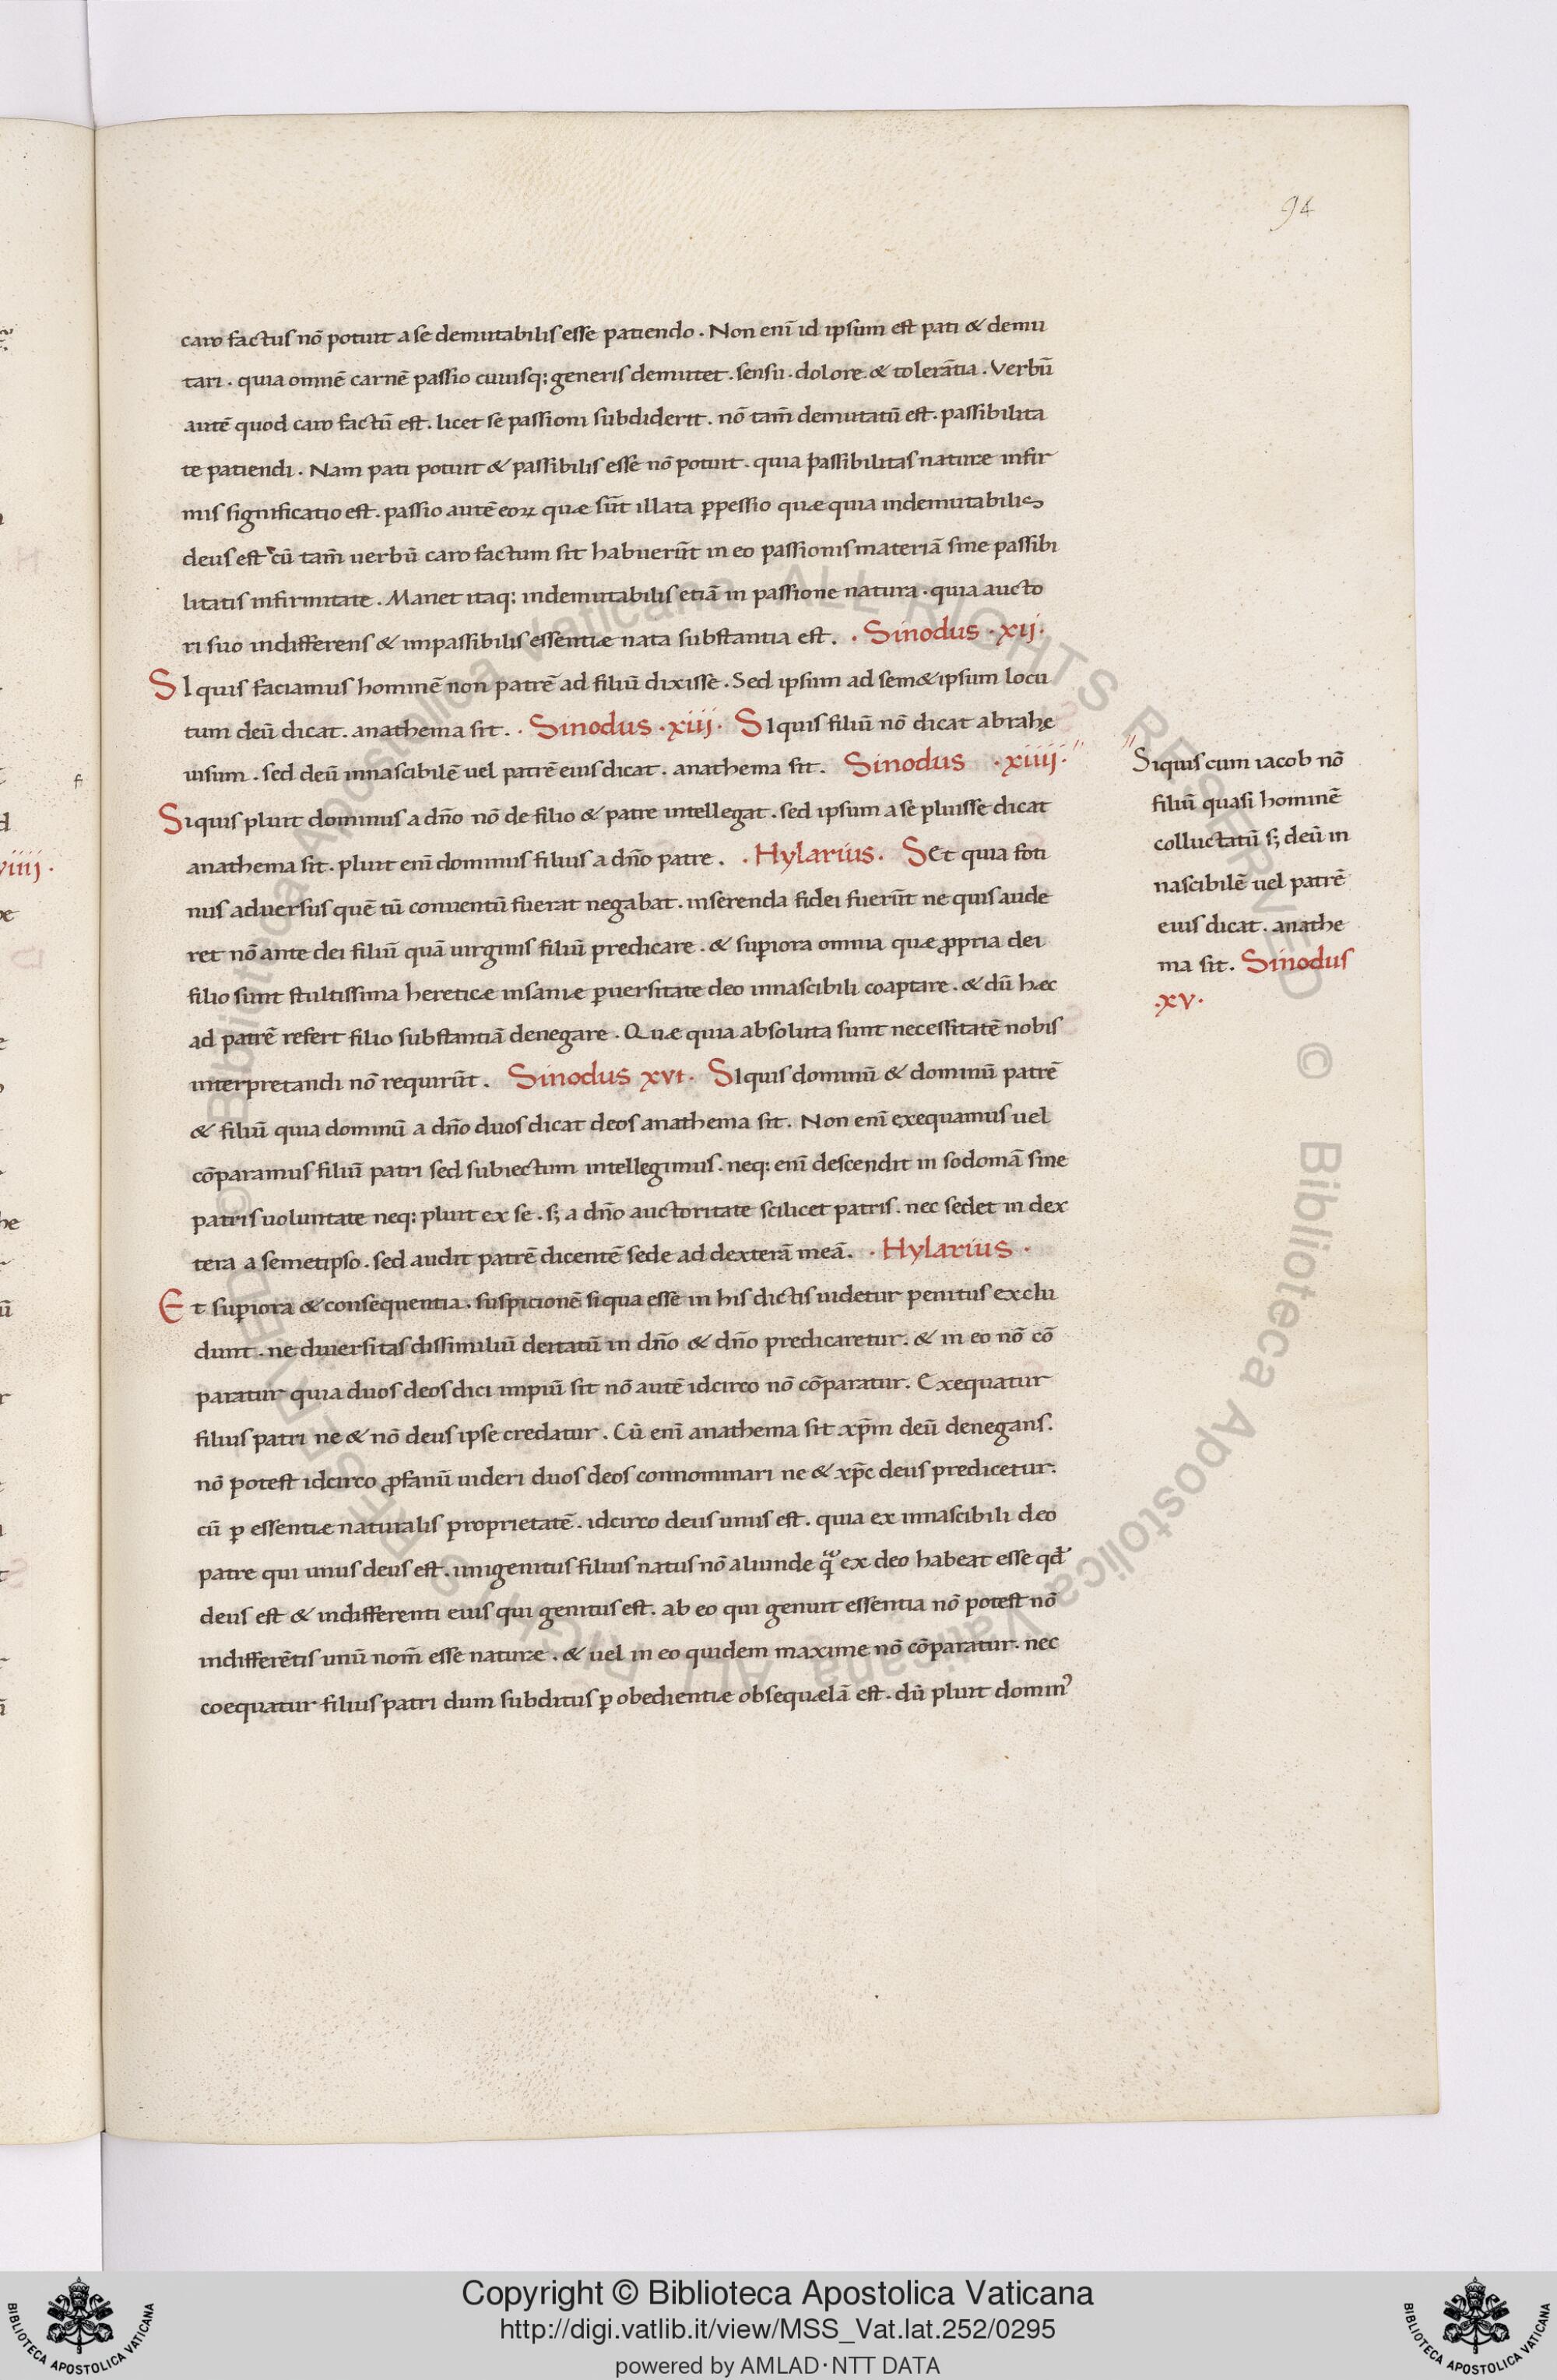 94
caro factus nō potuit a se demutabilis esse patiendo. Non enī id ipsum est pati & demu
tari. quia omnē carnē passio cuiusq: generis demutet. sensu. dolore. & tolerātia. Verbū
autē quod caro factū est. licet se passioni subdiderit. nō tam̄ demutatū est. passibilita
te patiendi. Nam pati potuit & passibilis esse nō potuit. quia passibilitas naturæ infir
mis significatio est. passio autē eoꝝ quæ sūt illata ꝑpessio quæ quia indemutabilis
deus est cū tam̄ uerbū caro factum sit habuerūt in eo passionis materiā sine passibi
litatis infirmitate. Manet itaq: indemutabilis etiā in passione natura. quia aucto
ri suo indifferens & impassibilis essentiæ nata substantia est. · Sinodus · xij ·
SI quis faciamus hominē non patrē ad filiū dixisse. Sed ipsum ad sem& ipsum locu
tum deū dicat. anathema sit. · Sinodus · xiij · SI quis filiū nō dicat abrahę
uisum. sed deū innascibilē uel patrē eius dicat. anathema sit. Sinodus · xiiij ·
Siquis pluit dominus a dn̄o nō de filio & patre intellegat. sed ipsum a se pluisse dicat
anathema sit. pluit enī dominus filius a dn̄o patre. · Hylarius · SEt quia foti
nus aduersus quē tū conuentū fuerat negabat. inserenda fidei fuerūt ne quis aude
ret nō ante dei filiū quā uirginis filiū predicare. & suꝑiora omnia quæ ꝓpria dei
filio sunt stultissima hereticæ insaniæ ꝑuersitate deo innascibili coaptare. & dū hæc
ad patrē refert filio substantiā denegare. Quæ quia absoluta sunt necessitatē nobis
interpretandi nō requirūt. Sinodus xvi · SI quis dominū & dominū patrē
& filiū quia dominū a dn̄o duos dicat deos anathema sit. Non enī exequamus uel
cōparamus filiū patri sed subiectum intellegimus. neq: enī descendit in sodomā sine
patris uoluntate neq: pluit ex se. s; a dn̄o auctoritate scilicet patris. nec sedet in dex
tera a semetipso. sed audit patrē dicentē sede ad dexterā meā. · Hylarius ·
Et suꝑiora & consequentia. suspicionē siqua esse in his dictis uidetur penitus exclu
dunt. ne diuersitas dissimiliū deitatū in dn̄o & dn̄o predicaretur. & in eo nō cō
paratur quia duos deos dici impiū sit nō autē idcirco nō cōparatur. Exequatur
filius patri ne & nō deus ipse credatur. Cū enī anathema sit xp̄m deū denegans.
nō potest idcirco ꝓfanū uideri duos deos connominari ne & xp̄c deus predicetur.
cū ꝑ essentiæ naturalis proprietatē. idcirco deus unus est. quia ex innascibili deo
patre qui unus deus est. unigenitus filius natus nō aliunde ex deo habeat esse qd̄
deus est & indifferenti eius qui genitus est. ab eo qui genuit essentia nō potest nō
indifferētis unū nom̄ esse naturæ. & uel in eo quidem maxime nō cōparatur. nec
coequatur filius patri dum subditus ꝑ obedientiæ obsequælā est. dū pluit domin᾿
Siquis cum iacob nō
filiū quasi hominē
colluctatū s; deū in
nascibilē uel patrē
eius dicat. anathe
ma sit. Sinodus
· xv ·
Copyright © Biblioteca Apostolica Vaticana
http://digi.vatlib.it/view/MSS_Vat.lat.252/0295
powered by AMLAD·NTT DATA
BIBLIOTECA APOSTOLICA VATICANA
BIBLIOTECA APOSTOLICA VATICANA
© Biblioteca Apostolica Vaticana ALL RIGHTS RESERVED © Biblioteca Apostolica Vaticana ALL RIGHTS RESERVED